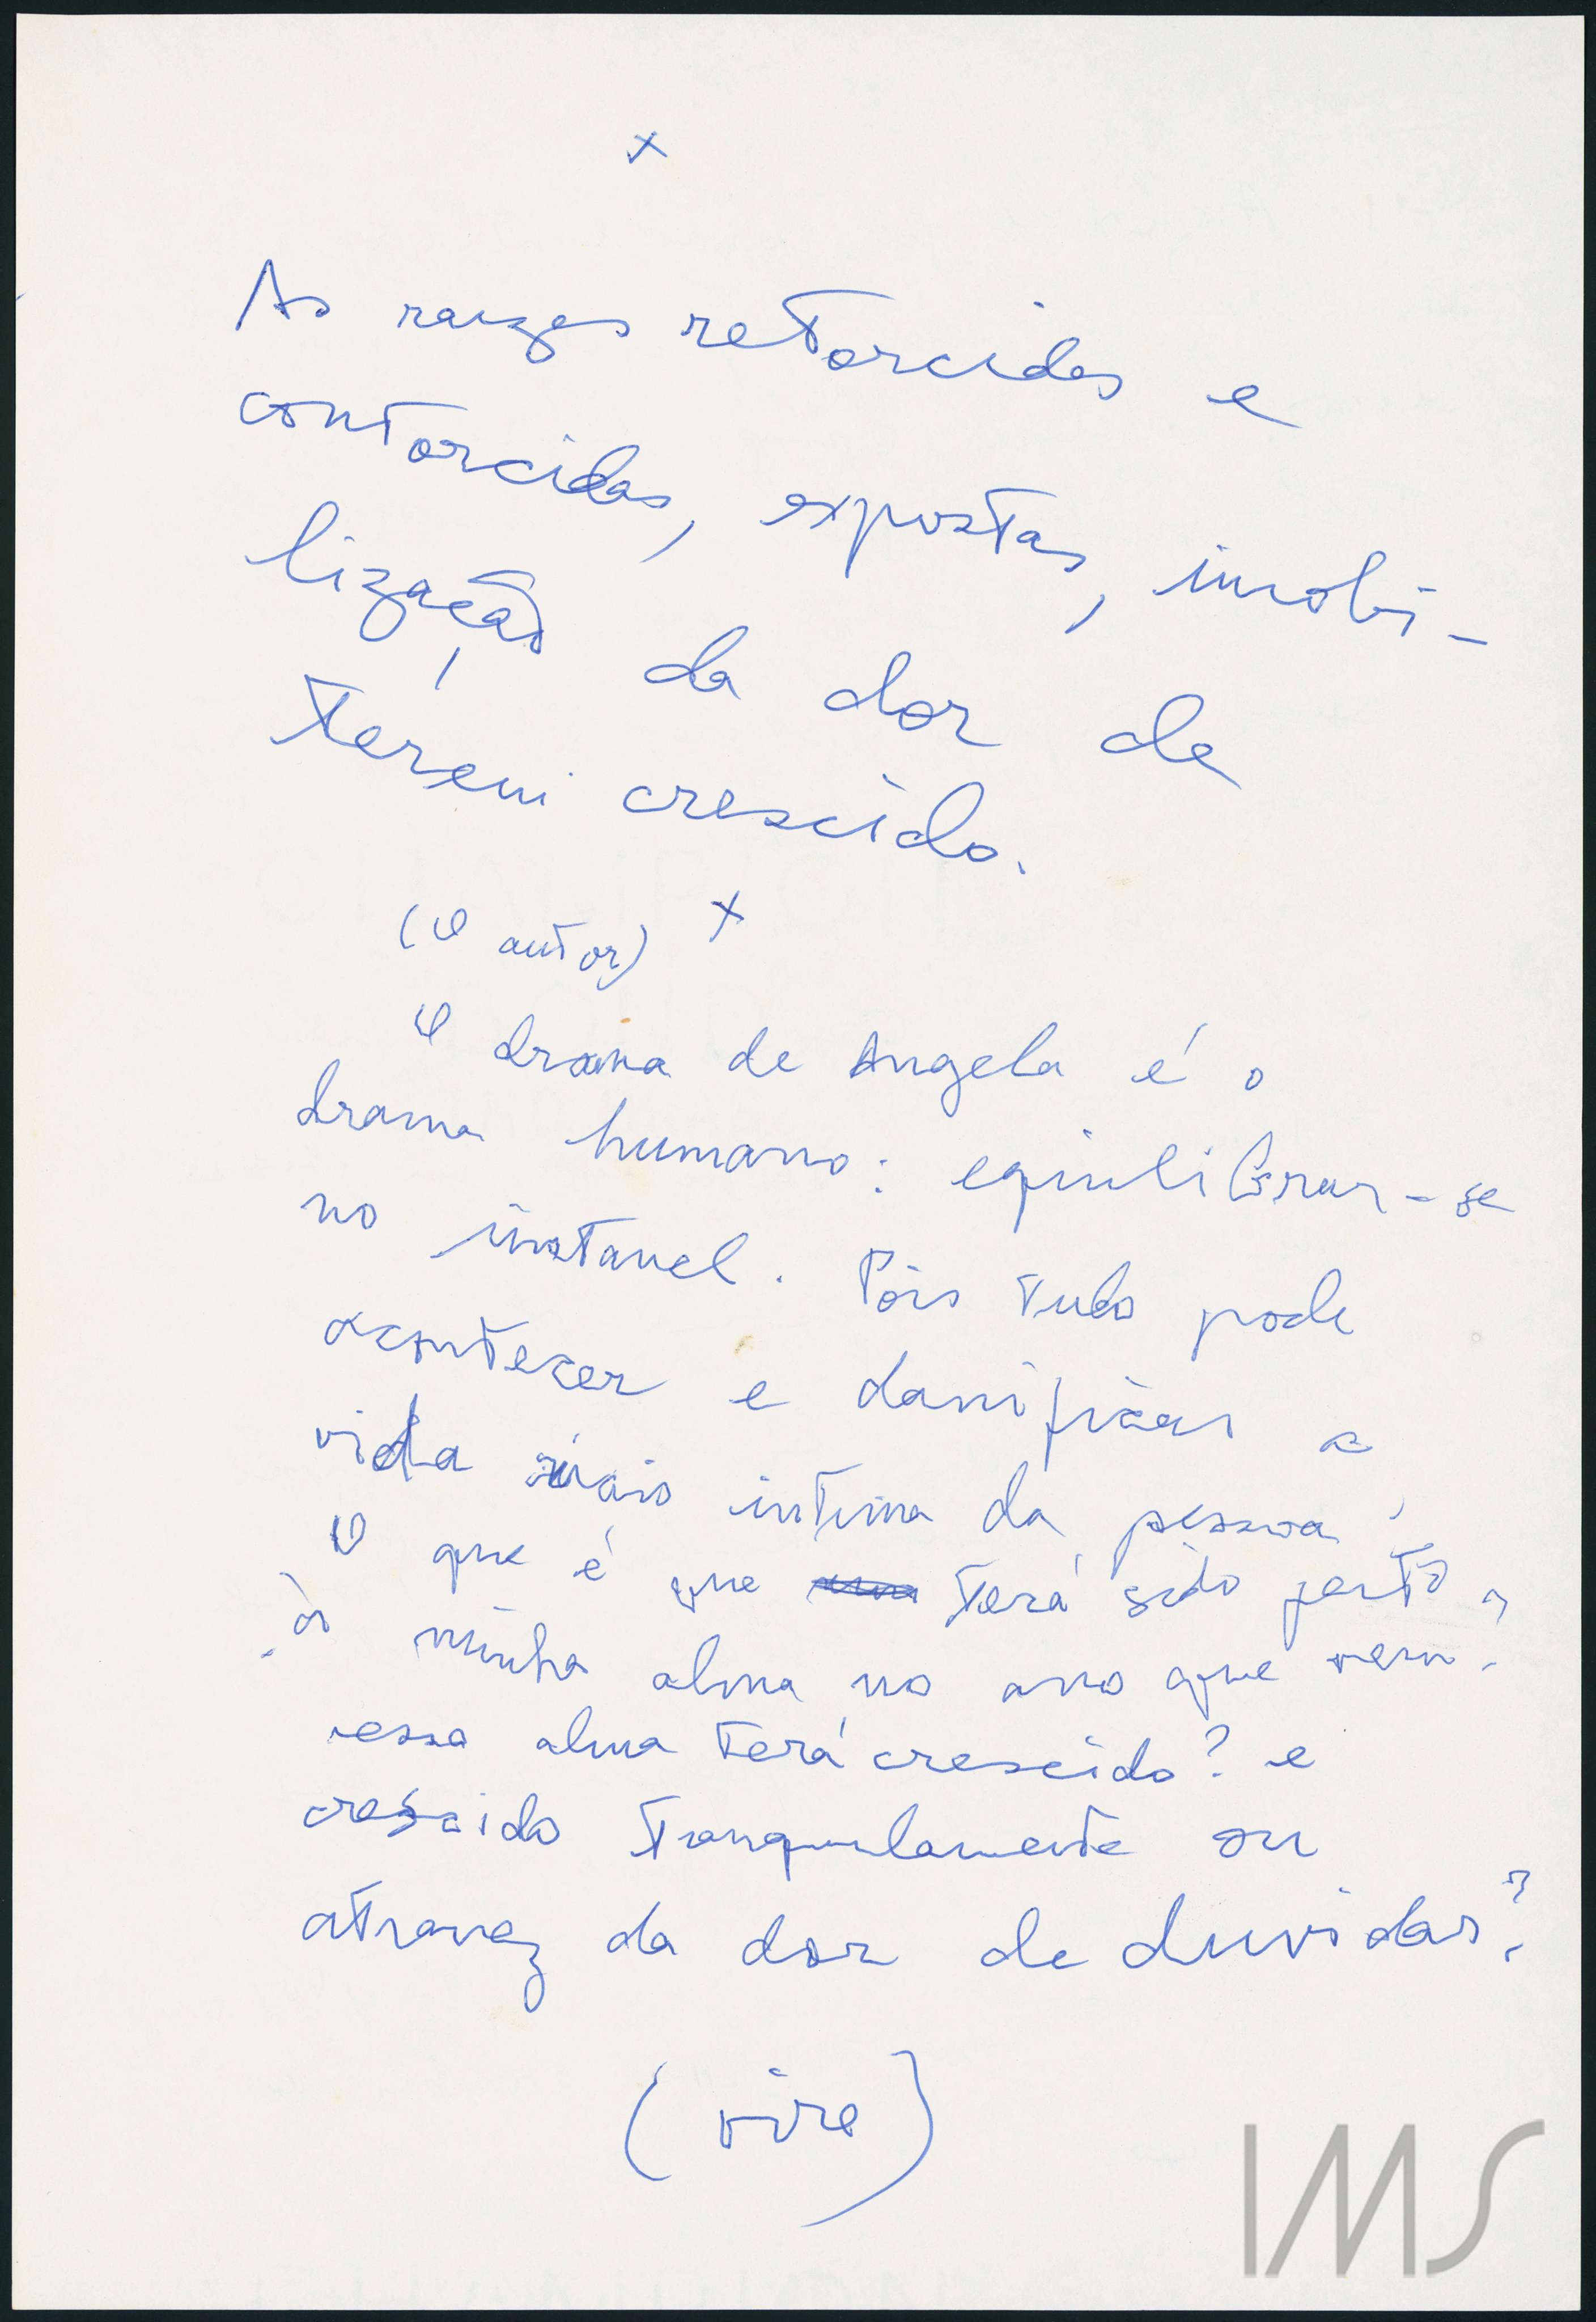 x
As raizes retorcidas e
contorcidas, expostas, imobi-
lização da dor de
terem crescido.
(O autor) x
O drama de Angela é o
drama humano: equilibrar-se
no instavel. Pois tudo pode
acontecer e danificar a
vida mais intima da pessoa.
O que é que terá sido feito
à minha alma no ano que vem?
essa alma terá crescido? e
crescido tranquilamente ou
atravez da dor de duvidas?
(vire)
IMS